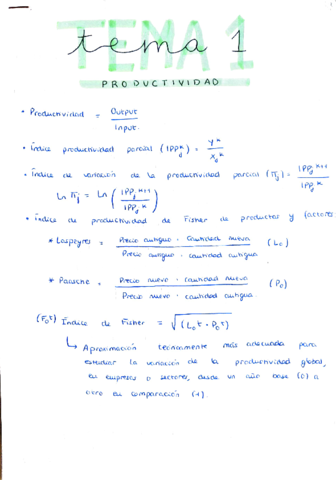 TEMA 1
tema 1
PRODUCTIVIDAD
• Productividad = Output / Input
• Índice productividad parcial (IPPj^k) = Y^k / Xj^k
• Índice de variación de la productividad parcial (πj) = IPPj^k+1 / IPPj^k
Ln πj = Ln (IPPj^k+1 / IPPj^k)
• Índice de productividad de Fisher de productos y factores
* Laspeyres = Precio antiguo · Cantidad nueva / Precio antiguo · cantidad antigua (Lo)
* Paasche = Precio nuevo · cantidad nueva / Precio nuevo · cantidad antigua (Po)
(Fo^t) Índice de Fisher = √(Lo^t · Po^t)
↳ Aproximación tecnicamente más adecuada para
estudiar la variación de la productividad global,
en empresas o sectores, desde un año base (0) a
otro en comparación (1).